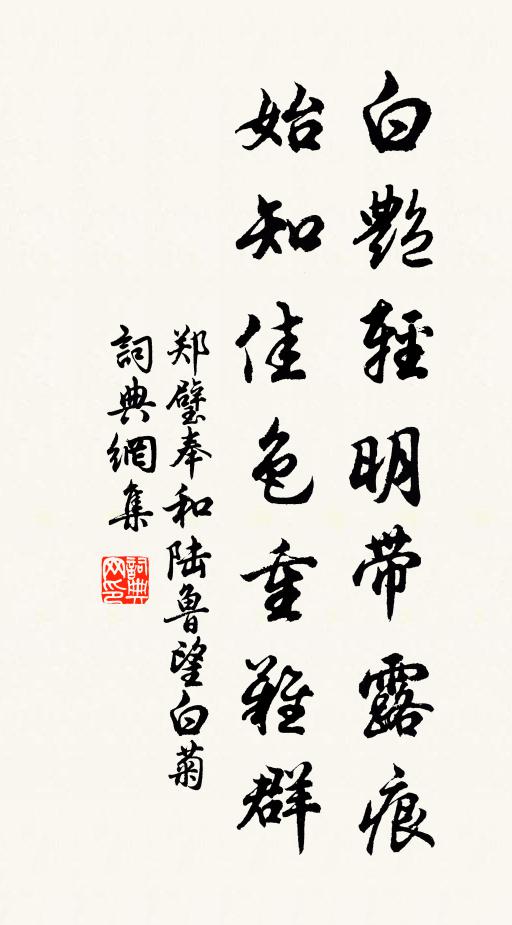 白艷輕明帶露痕
始知佳色重難群
郑璧奉和陆鲁望白菊
詞典網集
詞典网印